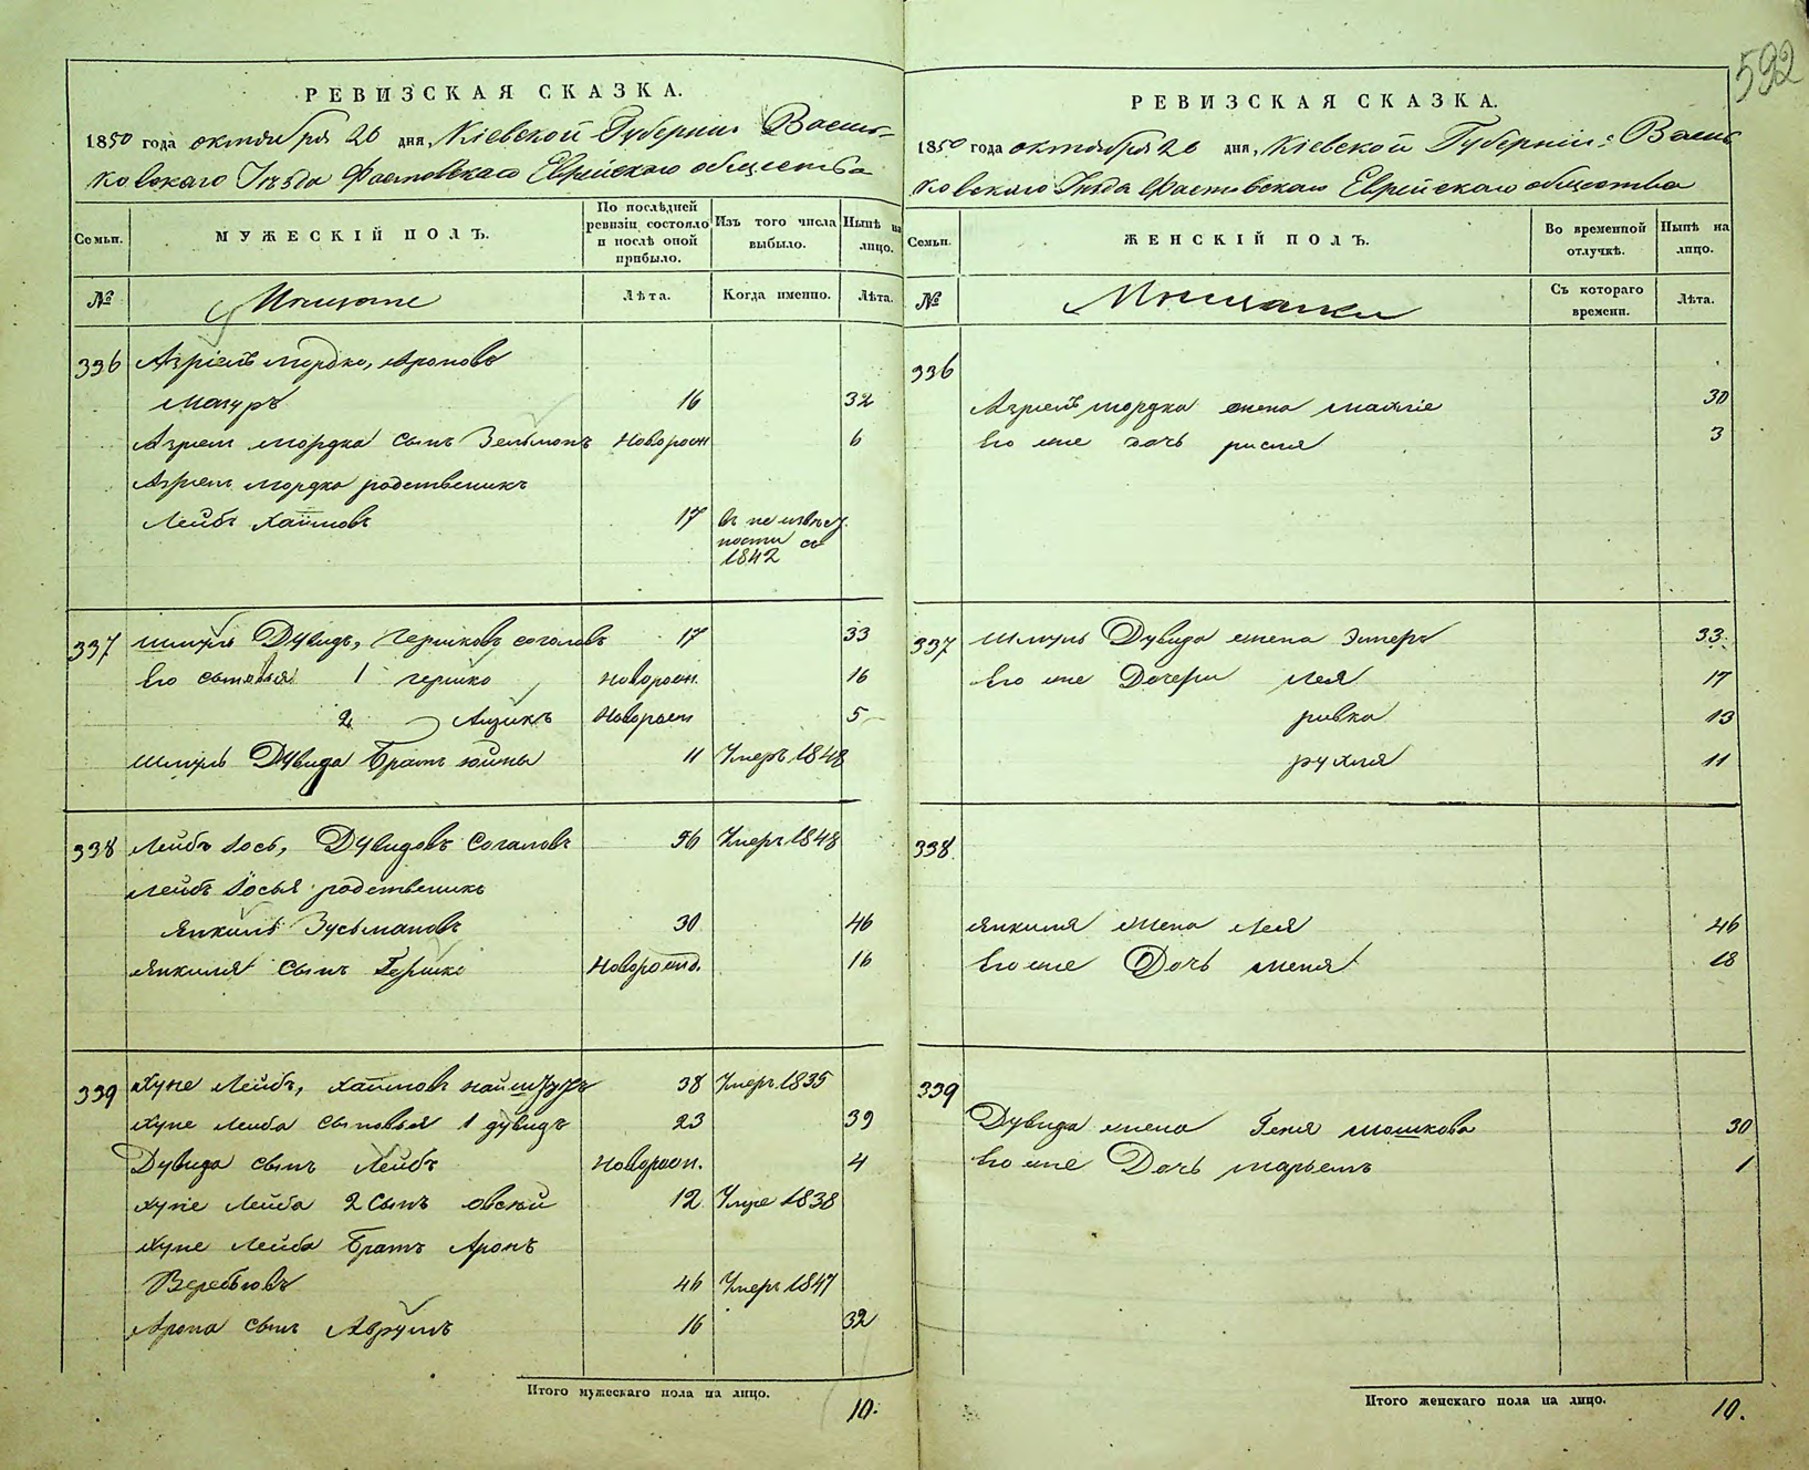 592
РЕВИЗСКАЯ СКАЗКА.
1850 года октября 26 дня, Кіевской Губерніи Василь-
ковскаго Уѣзда Фастовскаго Еврейскаго общества
Семьи.
МУЖЕСКІЙ ПОЛЪ.
По послѣдней ревизіи состояло и послѣ оной прибыло.
Изъ того числа выбыло.
Нынѣ на лицо.
№
Мещане
Лѣта.
Когда именно.
Лѣта.
336 Азріель Мордко, Ароновъ
Мазуръ 16 32
Азриел Мордка сынъ Зельманъ Новорожн 6
Азриел Мордка родственикъ
Лейбъ Хаимовъ 17 въ не извѣст
ности съ
1842
337 Шмуль Дувидъ, Гершковъ Согаловъ 17 33
Его сыновья 1 Гершко Новорожн. 16
2 Айзикъ Новорожн 5
Шмуль Дувида Братъ 11 Умеръ 1848
338 Лейбъ Іось, Дувидовъ Согаловъ 56 Умеръ 1848
Лейбъ Іосья родственикъ
Янкиль Зусьмановъ 30 46
Янкиля сынъ Гершко Новорожд. 16
339 Хуне Лейбъ, Хаимовъ 38 Умеръ 1835
Хуне Лейба сыновья 1 Дувидъ 23 39
Дувида сынъ Лейбъ Новорожн. 4
Хуне Лейба 2 сынъ Овсій 12 Умре 1838
Хуне Лейба Братъ Аронъ
46 Умеръ 1847
Арона сынъ Аврумъ 16 32
Итого мужескаго пола на лицо.
10.
РЕВИЗСКАЯ СКАЗКА.
1850 года октября 26 дня, Кіевской Губерніи Василь
ковскаго Уѣзда Фастовскаго Еврейскаго общества
Семьи.
ЖЕНСКІЙ ПОЛЪ.
Во временной отлучкѣ.
Нынѣ на лицо.
№
Мещанки
Съ котораго времени.
Лѣта.
336
Азриель Мордка жена 30
Его же дочь 3
337 Шмуль Дувида жена Эстеръ 33.
Его же Дочери Лея 17
Ривка 13
Рухля 11
338.
Янкиля жена Лея 46
Его же Дочь Меня 18
339
Дувида жена Геня Мошкова 30
Его же Дочь Марьемъ 1
Итого женскаго пола на лицо.
10.